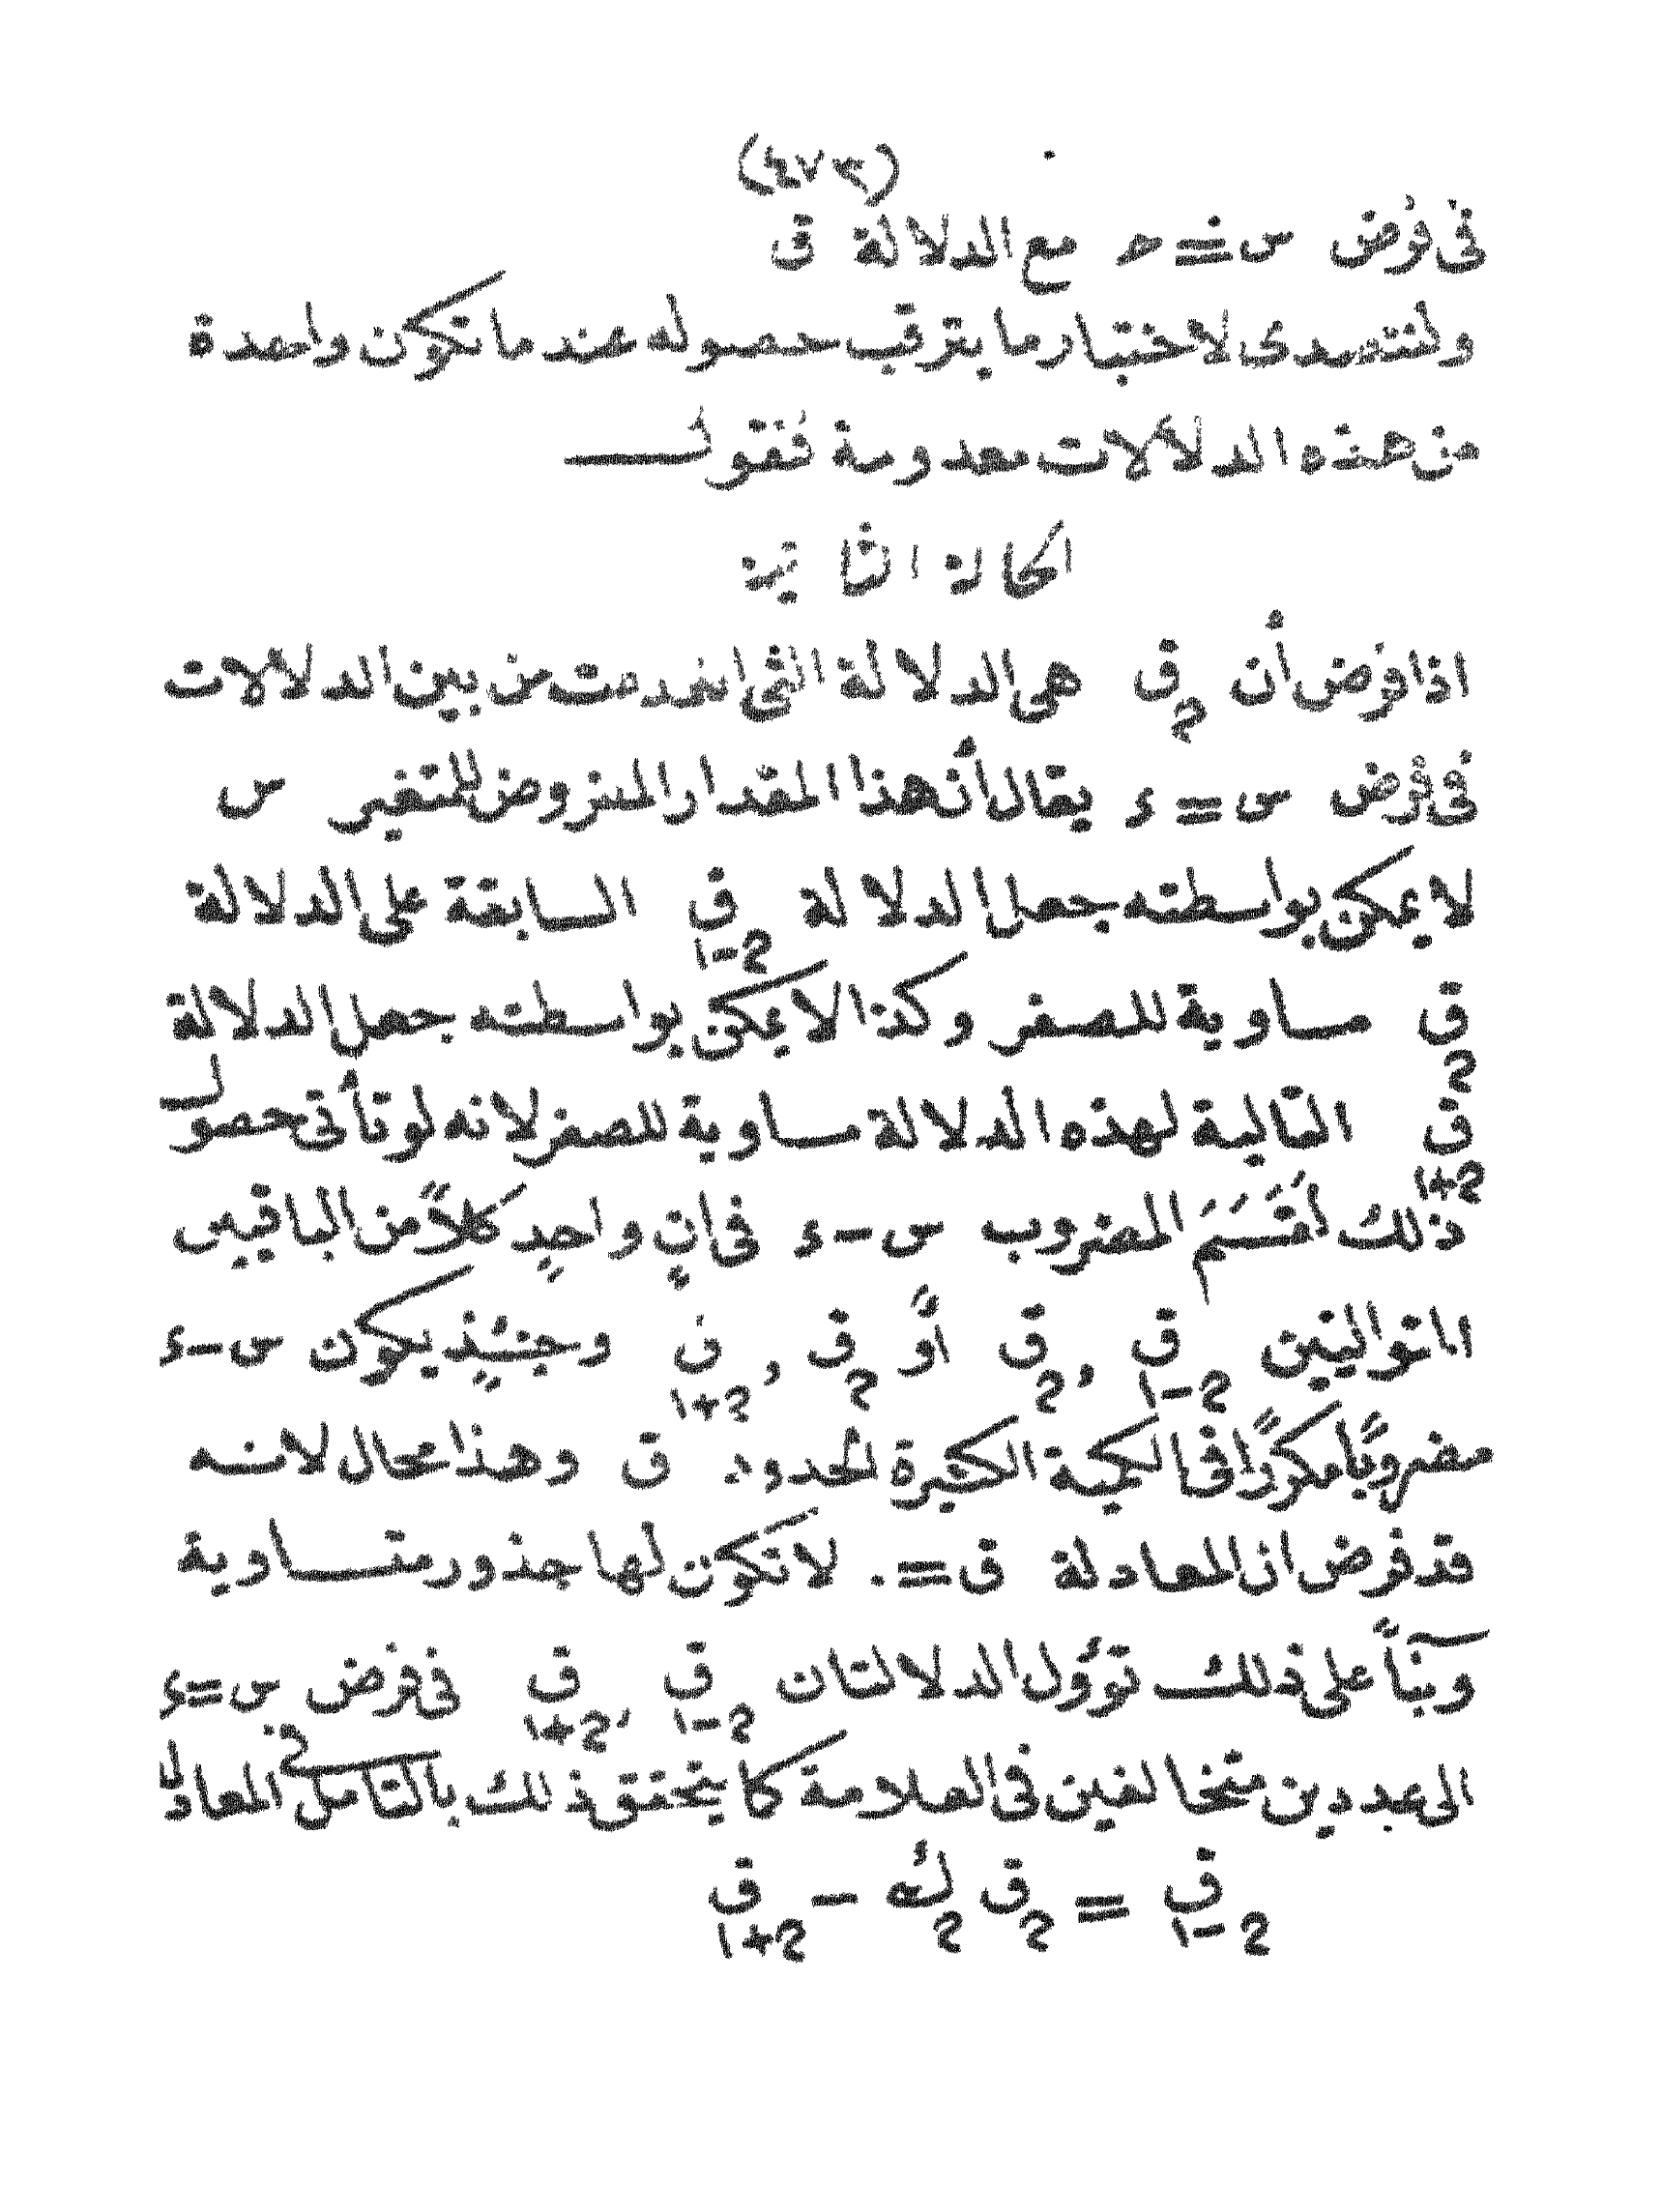 (٤٧٣)
فى فرض س = ح مع الدلالة ق
ولنتصدى لاختبار ما يترقب حصوله عند ما تكون واحدة
من هذه الدلالات معدومة فنقول
الحالة الثانية
اذا فرض أن ق2 هى الدلالة التى انعدمت من بين الدلالات
فى فرض س = ء يقال أن هذا المقدار المفروض للمتغير س
لا يمكن بواسطته جعل الدلالة ق2-١ السابقة على الدلالة
ق2 مساوية للصفر وكذا لا يمكن بواسطته جعل الدلالة
ق2+١ التالية لهذه الدلالة مساوية للصفر لانه لو تأتى حصول
ذلك لقَسَمَ المضروب س-ء فى انٍ واحدٍ كلاً من الباقيين
المتواليين ق2-١ , ق2 أو ق2 , ق2+١ وحينئذٍ يكون س-ء
مضروبًا مكررًا فى الكمية الكثيرة الحدود ق وهذا محال لانه
قد فرض ان المعادلة ق = ٠ لا تكون لها جذور متساوية
وبناً على ذلك تؤول الدلالتان ق2-١ , ق2+١ فى فرض س=ء
الى عددين متخالفين فى العلامة كما يتحقق ذلك بالتامل فى المعادلة
ق2-١ = ق2 ك2 - ق2+١